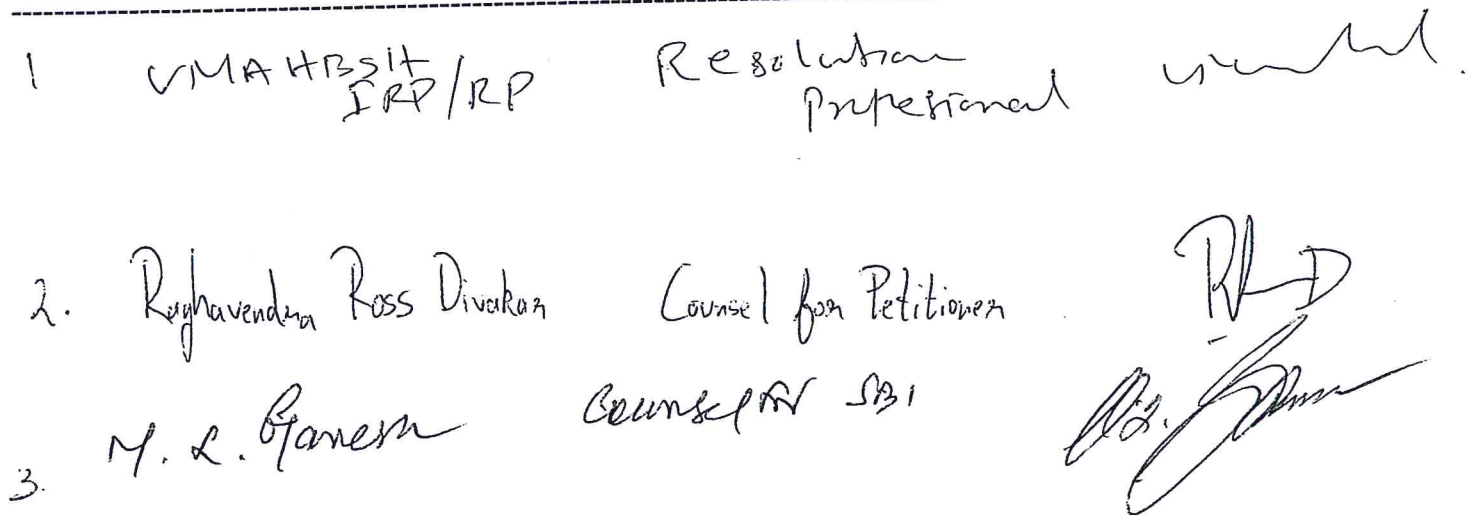 1 VMAHBSH Resolution
IRP/RP Professional
2. Raghavendra Ross Divakar Counsel for Petitioner
3. M. L. Ganesh Counsel for SBI